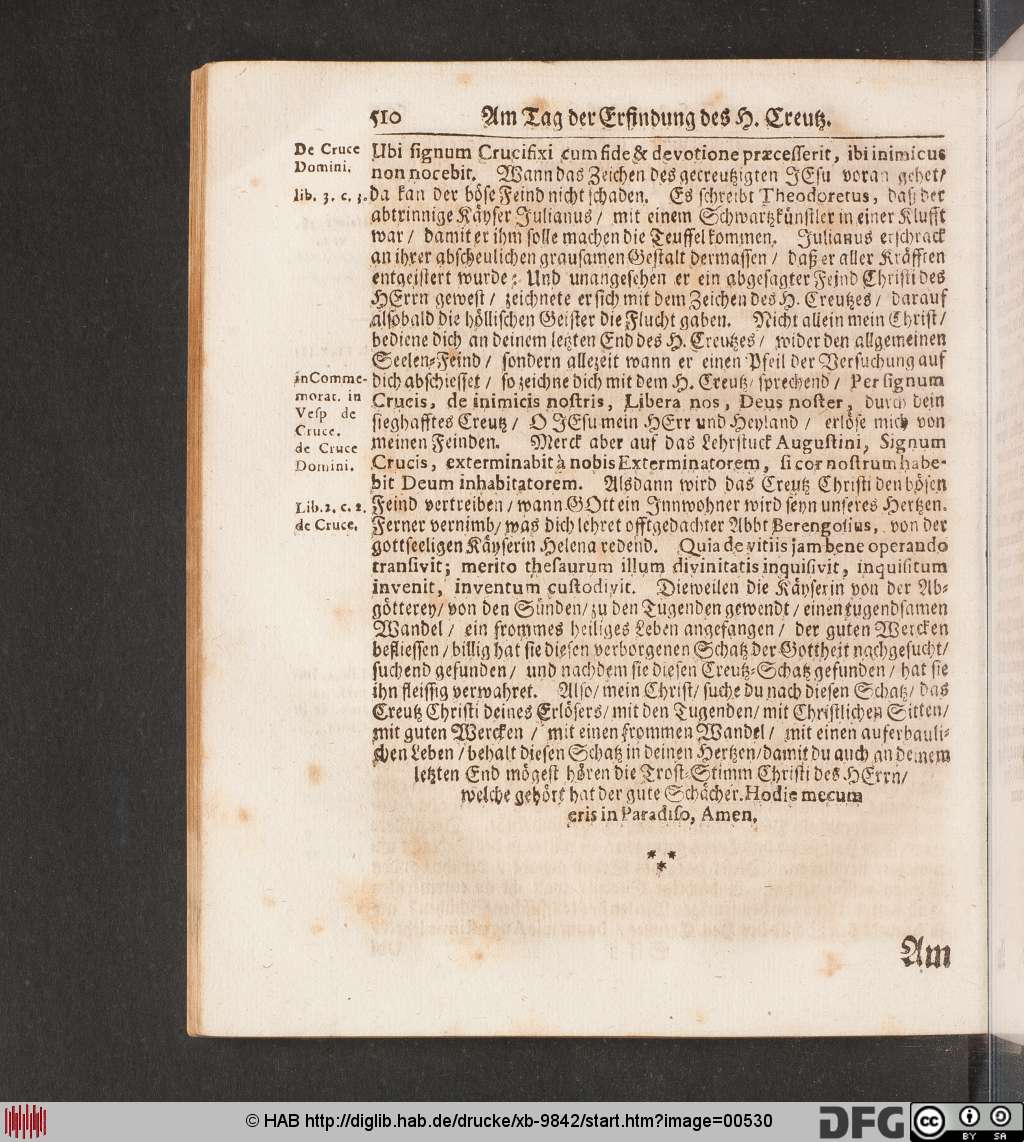 510 Am Tag der Erfindung des H. Creutz.
De Cruce
Domini.
lib. 3. c. 3.
Ubi signum Crucifixi cum fide & devotione præcesserit, ibi inimicus
non nocebit. Wann das Zeichen des gecreutzigten JEsu voran gehet/
da kan der böse Feind nicht schaden. Es schreibt Theodoretus, daß der
abtrinnige Käyser Julianus / mit einem Schwartzkünstler in einer Klufft
war / damit er ihm solle machen die Teuffel kommen. Julianus erschrack
an ihrer abscheulichen grausamen Gestalt dermassen / daß er aller Kräfften
entgeistert wurde: Und unangesehen er ein abgesagter Feind Christi des
HErrn gewest / zeichnete er sich mit dem Zeichen des H. Creutzes / darauf
alsobald die höllischen Geister die Flucht gaben. Nicht allein mein Christ/
bediene dich an deinem letzten End des H. Creutzes / wider den allgemeinen
Seelen-Feind / sondern allezeit wann er einen Pfeil der Versuchung auf
in Comme-
morat. in
Vesp de
Cruce.
de Cruce
Domini.
dich abschiesset / so zeichne dich mit dem H. Creutz/ sprechend / Per signum
Crucis, de inimicis nostris, Libera nos, Deus noster, durch dein
sieghafftes Creutz / O JEsu mein HErr und Heyland / erlöse mich von
meinen Feinden. Merck aber auf das Lehrstuck Augustini, Signum
Crucis, exterminabit à nobis Exterminatorem, si cor nostrum habe-
bit Deum inhabitatorem. Alsdann wird das Creutz Christi den bösen
Lib. 2. c. 2.
de Cruce.
Feind vertreiben / wann GOtt ein Innwohner wird seyn unseres Hertzen.
Ferner vernimb/ was dich lehret offtgedachter Abbt Berengosius, von der
gottseeligen Käyserin Helena redend. Quia de vitiis jam bene operando
transivit; merito thesaurum illum divinitatis inquisivit, inquisitum
invenit, inventum custodivit. Dieweilen die Käyserin von der Ab-
götterey/ von den Sünden/ zu den Tugenden gewendt / einen tugendsamen
Wandel / ein frommes heiliges Leben angefangen / der guten Wercken
befliessen / billig hat sie diesen verborgenen Schatz der Gottheit nachgesucht/
suchend gefunden / und nachdem sie diesen Creutz-Schatz gefunden / hat sie
ihn fleissig verwahret. Also/ mein Christ/ suche du nach diesen Schatz/ das
Creutz Christi deines Erlösers/ mit den Tugenden/ mit Christlichen Sitten/
mit guten Wercken / mit einen frommen Wandel / mit einen auferbauli-
chen Leben / behalt diesen Schatz in deinen Hertzen/ damit du auch an deinem
letzten End mögest hören die Trost-Stimm Christi des HErrn/
welche gehört hat der gute Schächer. Hodie mecum
eris in Paradiso, Amen.
* * *
Am
© HAB http://diglib.hab.de/drucke/xb-9842/start.htm?image=00530
DFG
cc BY SA